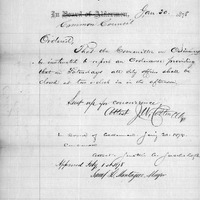 In Board of Aldermen, Jan 20. 1878
Common Council
Ordered,
That the Committee on Ordinances
be instructed to report an Ordinance providing
that on Saturdays all City offices shall be
closed at two o'clock in the afternoon.
Sent up for concurrence
Attest
In Board of Aldermen, Jany 20. 1878
Concurred
Attest
Approved
Saml. C. Mayor